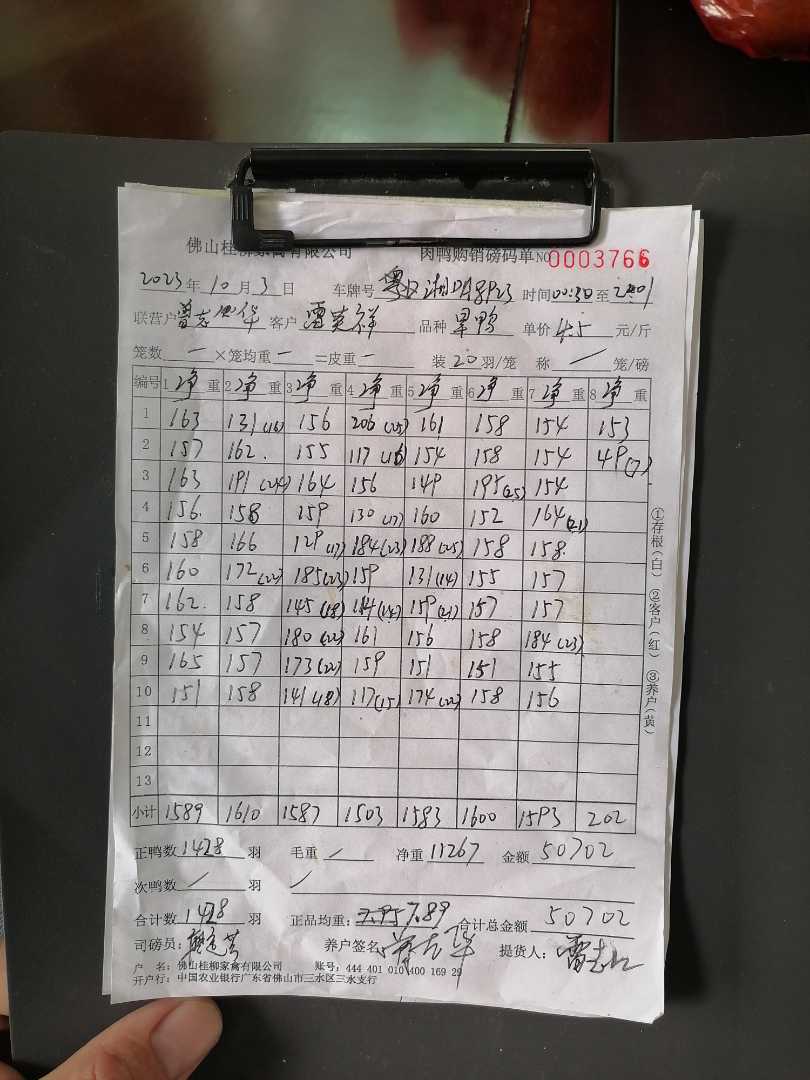 佛山桂柳家禽有限公司 肉鸭购销磅码单 NO 0003766
2023年10月3日 车牌号 时间00:30至
联营户 曾志华 客户 品种 单价 4.5 元/斤
笼数 — ×笼均重 — =皮重 — 装 20 羽/笼 称 / 笼/磅
编号 1 净重 2 净重 3 净重 4 净重 5 净重 6 净重 7 净重 8 净重
1 163 131(16) 156 206(25) 161 158 154 153
2 157 162 155 117(16) 154 158 154 49(7)
3 163 191(24) 164 156 149 195(25) 154
4 156 158 159 130(17) 160 152 164(21)
5 158 166 129(17) 184(23) 188(25) 158 158
6 160 172(22) 185(23) 159 131(14) 155 157
7 162 158 145(18) 159(21) 157 157
8 154 157 180(22) 161 156 158 184(23)
9 165 157 173(22) 159 151 151 155
10 151 158 141(18) 117(15) 174(22) 158 156
11
12
13
小计 1589 1610 1587 1503 1583 1600 1593 202
正鸭数 1428 羽 毛重 / 净重 11267 金额 50702
次鸭数 / 羽 /
合计数 1428 羽 正品均重: 7.89 合计总金额 50702
司磅员: 养户签名 提货人:
户 名: 佛山桂柳家禽有限公司 账号: 444 401 010 400 169 29
开户行: 中国农业银行广东省佛山市三水区三水支行
①存根(白) ②客户(红) ③养户(黄)